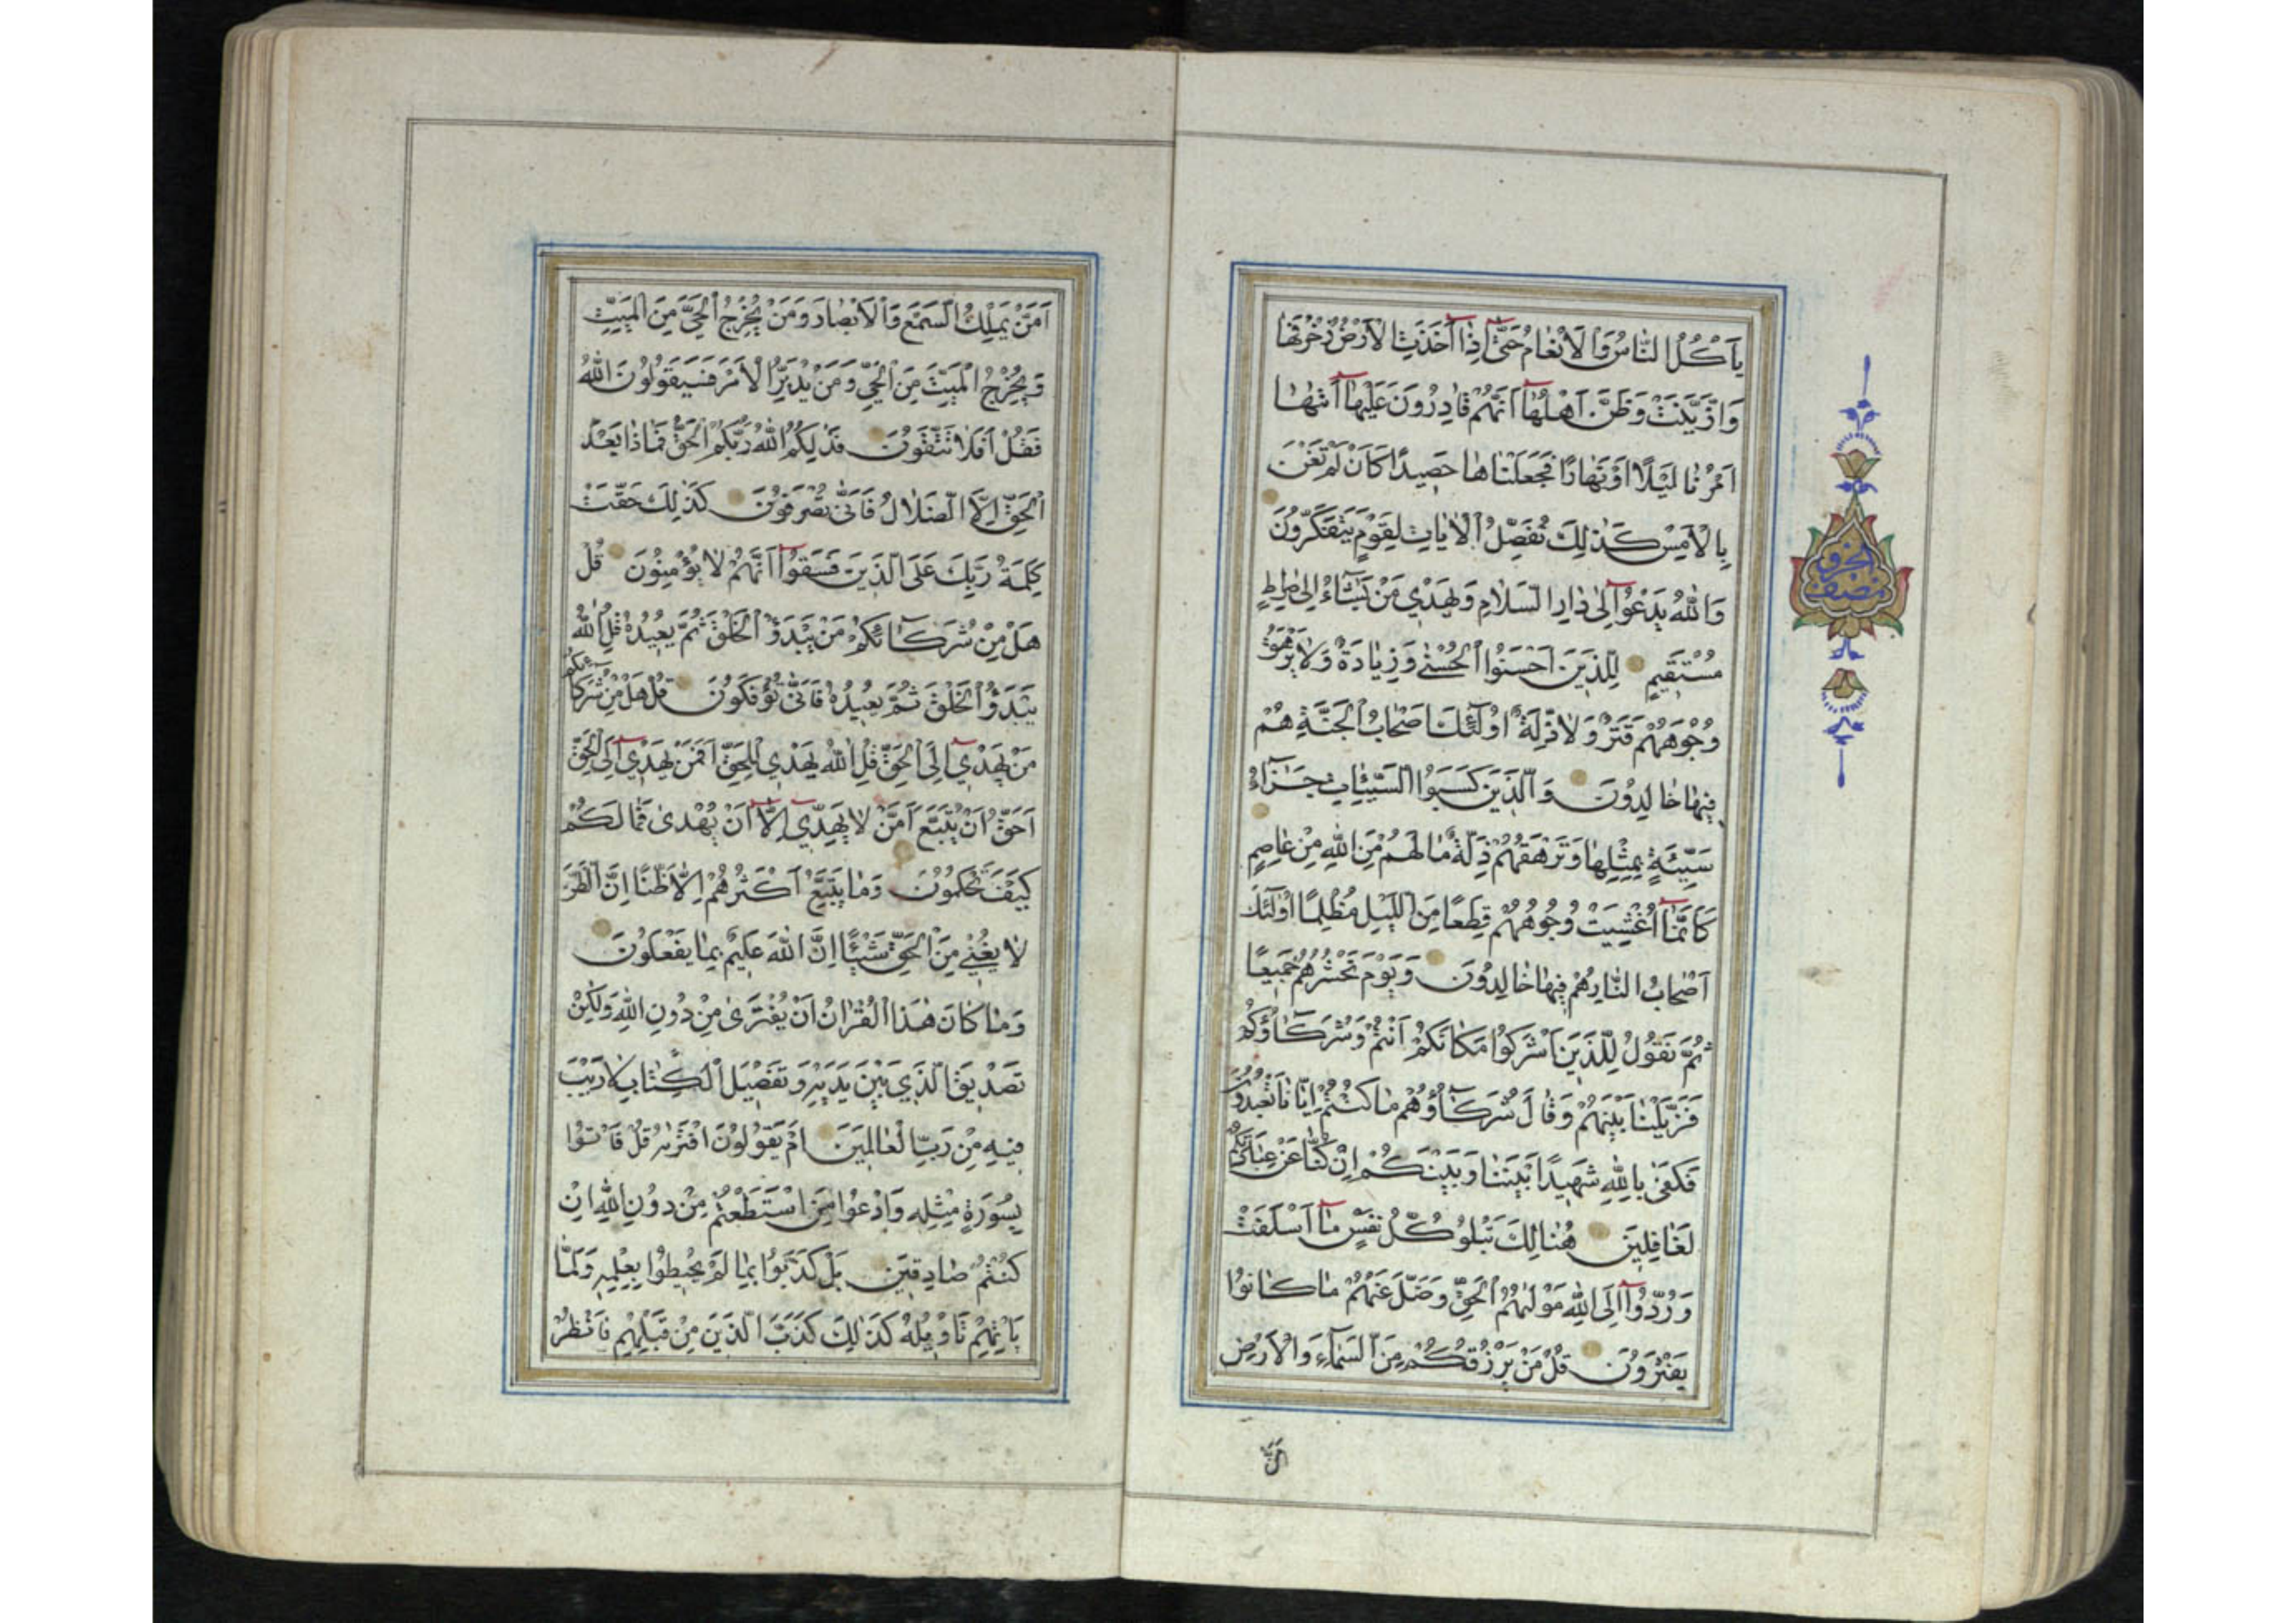 يَأْكُلُ النَّاسُ وَالْاَنْعَامُ حَتّٰٓى اِذَٓا اَخَذَتِ الْاَرْضُ زُخْرُفَهَا
وَازَّيَّنَتْ وَظَنَّ اَهْلُهَٓا اَنَّهُمْ قَادِرُونَ عَلَيْهَٓا اَتٰيهَٓا
اَمْرُنَا لَيْلًا اَوْ نَهَارًا فَجَعَلْنَاهَا حَصِيدًا كَاَنْ لَمْ تَغْنَ
بِالْاَمْسِ كَذٰلِكَ نُفَصِّلُ الْاٰيَاتِ لِقَوْمٍ يَتَفَكَّرُونَ
وَاللّٰهُ يَدْعُٓوا اِلٰى دَارِ السَّلَامِ وَيَهْدِي مَنْ يَشَٓاءُ اِلٰى صِرَاطٍ
مُسْتَقِيمٍ لِلَّذِينَ اَحْسَنُوا الْحُسْنٰى وَزِيَادَةٌ وَلَا يَرْهَقُ
وُجُوهَهُمْ قَتَرٌ وَلَا ذِلَّةٌ اُولٰٓئِكَ اَصْحَابُ الْجَنَّةِ هُمْ
فِيهَا خَالِدُونَ وَالَّذِينَ كَسَبُوا السَّيِّئَاتِ جَزَٓاءُ
سَيِّئَةٍ بِمِثْلِهَا وَتَرْهَقُهُمْ ذِلَّةٌ مَا لَهُمْ مِنَ اللّٰهِ مِنْ عَاصِمٍ
كَاَنَّمَٓا اُغْشِيَتْ وُجُوهُهُمْ قِطَعًا مِنَ اللَّيْلِ مُظْلِمًا اُولٰٓئِكَ
اَصْحَابُ النَّارِ هُمْ فِيهَا خَالِدُونَ وَيَوْمَ نَحْشُرُهُمْ جَمِيعًا
ثُمَّ نَقُولُ لِلَّذِينَ اَشْرَكُوا مَكَانَكُمْ اَنْتُمْ وَشُرَكَٓاؤُكُمْ
فَزَيَّلْنَا بَيْنَهُمْ وَقَالَ شُرَكَٓاؤُهُمْ مَا كُنْتُمْ اِيَّانَا تَعْبُدُونَ
فَكَفٰى بِاللّٰهِ شَهِيدًا بَيْنَنَا وَبَيْنَكُمْ اِنْ كُنَّا عَنْ عِبَادَتِكُمْ
لَغَافِلِينَ هُنَالِكَ تَبْلُو كُلُّ نَفْسٍ مَٓا اَسْلَفَتْ
وَرُدُّٓوا اِلَى اللّٰهِ مَوْلٰيهُمُ الْحَقِّ وَضَلَّ عَنْهُمْ مَا كَانُوا
يَفْتَرُونَ قُلْ مَنْ يَرْزُقُكُمْ مِنَ السَّمَٓاءِ وَالْاَرْضِ
اَمَّنْ
نصف
الحزب
اَمَّنْ يَمْلِكُ السَّمْعَ وَالْاَبْصَارَ وَمَنْ يُخْرِجُ الْحَيَّ مِنَ الْمَيِّتِ
وَيُخْرِجُ الْمَيِّتَ مِنَ الْحَيِّ وَمَنْ يُدَبِّرُ الْاَمْرَ فَسَيَقُولُونَ اللّٰهُ
فَقُلْ اَفَلَا تَتَّقُونَ فَذٰلِكُمُ اللّٰهُ رَبُّكُمُ الْحَقُّ فَمَاذَا بَعْدَ
الْحَقِّ اِلَّا الضَّلَالُ فَاَنّٰى تُصْرَفُونَ كَذٰلِكَ حَقَّتْ
كَلِمَةُ رَبِّكَ عَلَى الَّذِينَ فَسَقُٓوا اَنَّهُمْ لَا يُؤْمِنُونَ قُلْ
هَلْ مِنْ شُرَكَٓائِكُمْ مَنْ يَبْدَؤُا الْخَلْقَ ثُمَّ يُعِيدُهُ قُلِ اللّٰهُ
يَبْدَؤُا الْخَلْقَ ثُمَّ يُعِيدُهُ فَاَنّٰى تُؤْفَكُونَ قُلْ هَلْ مِنْ شُرَكَٓائِكُمْ
مَنْ يَهْدِٓي اِلَى الْحَقِّ قُلِ اللّٰهُ يَهْدِي لِلْحَقِّ اَفَمَنْ يَهْدِٓي اِلَى الْحَقِّ
اَحَقُّ اَنْ يُتَّبَعَ اَمَّنْ لَا يَهِدِّٓي اِلَّٓا اَنْ يُهْدٰى فَمَا لَكُمْ
كَيْفَ تَحْكُمُونَ وَمَا يَتَّبِعُ اَكْثَرُهُمْ اِلَّا ظَنًّا اِنَّ الظَّنَّ
لَا يُغْنِي مِنَ الْحَقِّ شَيْئًا اِنَّ اللّٰهَ عَلِيمٌ بِمَا يَفْعَلُونَ
وَمَا كَانَ هٰذَا الْقُرْاٰنُ اَنْ يُفْتَرٰى مِنْ دُونِ اللّٰهِ وَلٰكِنْ
تَصْدِيقَ الَّذِي بَيْنَ يَدَيْهِ وَتَفْصِيلَ الْكِتَابِ لَا رَيْبَ
فِيهِ مِنْ رَبِّ الْعَالَمِينَ اَمْ يَقُولُونَ افْتَرٰيهُ قُلْ فَاْتُوا
بِسُورَةٍ مِثْلِهِ وَادْعُوا مَنِ اسْتَطَعْتُمْ مِنْ دُونِ اللّٰهِ اِنْ
كُنْتُمْ صَادِقِينَ بَلْ كَذَّبُوا بِمَا لَمْ يُحِيطُوا بِعِلْمِهِ وَلَمَّا
يَاْتِهِمْ تَاْوِيلُهُ كَذٰلِكَ كَذَّبَ الَّذِينَ مِنْ قَبْلِهِمْ فَانْظُرْ